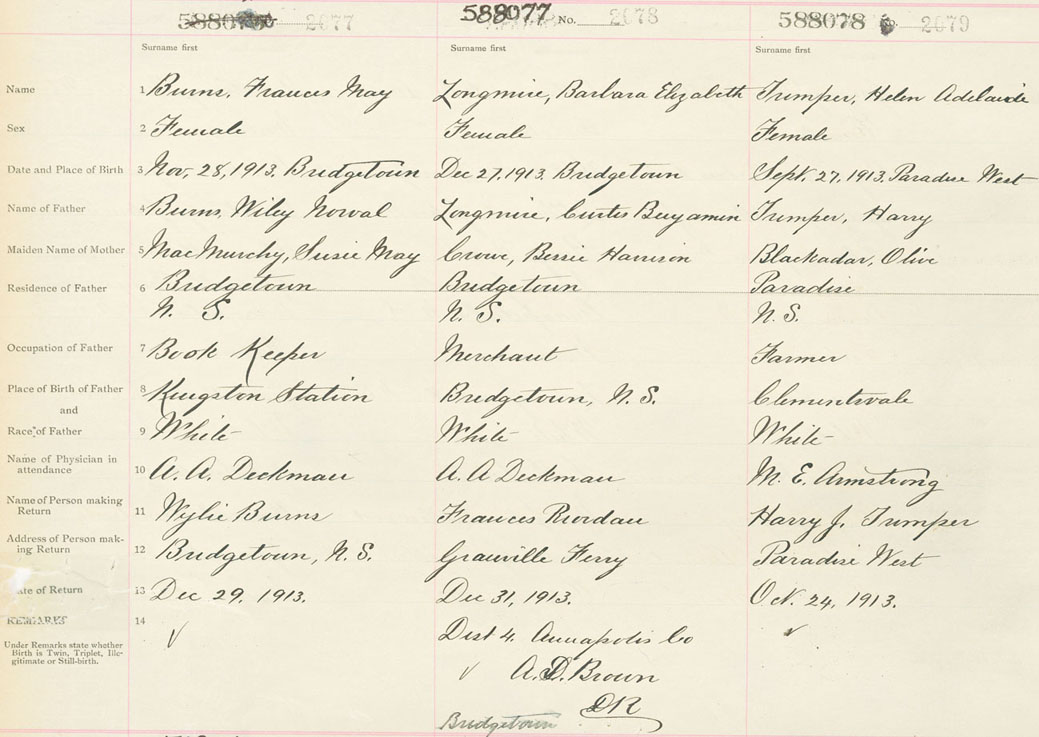 2077
588077 No. 2078
588078 No. 2079
Surname first Surname first Surname first
Name 1 Burns, Frances May Longmire, Barbara Elizabeth Trimper, Helen Adelaide
Sex 2 Female Female Female
Date and Place of Birth 3 Nov, 28, 1913. Bridgetown Dec 27, 1913. Bridgetown Sept. 27, 1913. Paradise West
Name of Father 4 Burns, Wiley Norval Longmire, Curtis Benjamin Trimper, Harry
Maiden Name of Mother 5 MacMurchy, Susie May Crowe, Bessie Harrison Blackadar, Olive
Residence of Father 6 Bridgetown Bridgetown Paradise
N. S. N. S. N. S.
Occupation of Father 7 Book Keeper Merchant Farmer
Place of Birth of Father 8 Kingston Station Bridgetown, N. S. Clementsvale
and
Race of Father 9 White White White
Name of Physician in
attendance 10 A. A. Deckman A. A Deckman M. E. Armstrong
Name of Person making
Return 11 Wylie Burns Frances Riordan Harry J. Trimper
Address of Person mak-
ing Return 12 Bridgetown, N. S. Granville Ferry Paradise West
ate of Return 13 Dec 29, 1913. Dec 31, 1913. Oct. 24, 1913.
REMARKS 14
Under Remarks state whether
Birth is Twin, Triplet, Ille-
gitimate or Still-birth.
✓ Dist 4. Annapolis Co ✓
✓ A. D. Brown
DR
Bridgetown